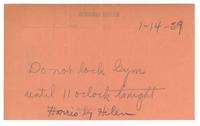 1-14-39
Do not lock Gym
until 11 oclock tonight
Harris by Helen